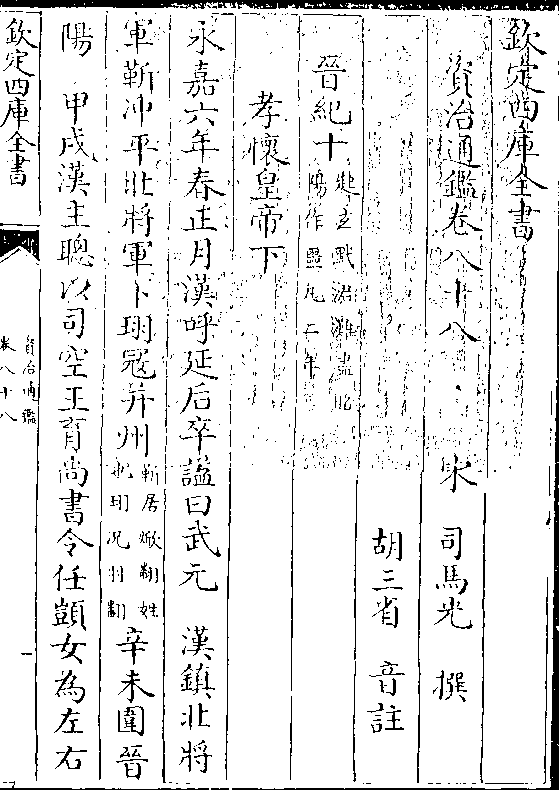 欽定四庫全書
資治通鑑卷八十八
宋 司馬光 撰
胡三省 音註
晉紀十起玄黓涒灘盡昭陽作噩凡二年
孝懷皇帝下
永嘉六年春正月漢呼延后卒諡曰武元 漢鎮北將
軍靳沖平北將軍卜珝冦并州靳居焮翻姓也珝况羽翻辛未圍晉
陽 甲戌漢主聰以司空王育尚書令任顗女為左右
欽定四庫全書
資治通鑑
卷八十八
一